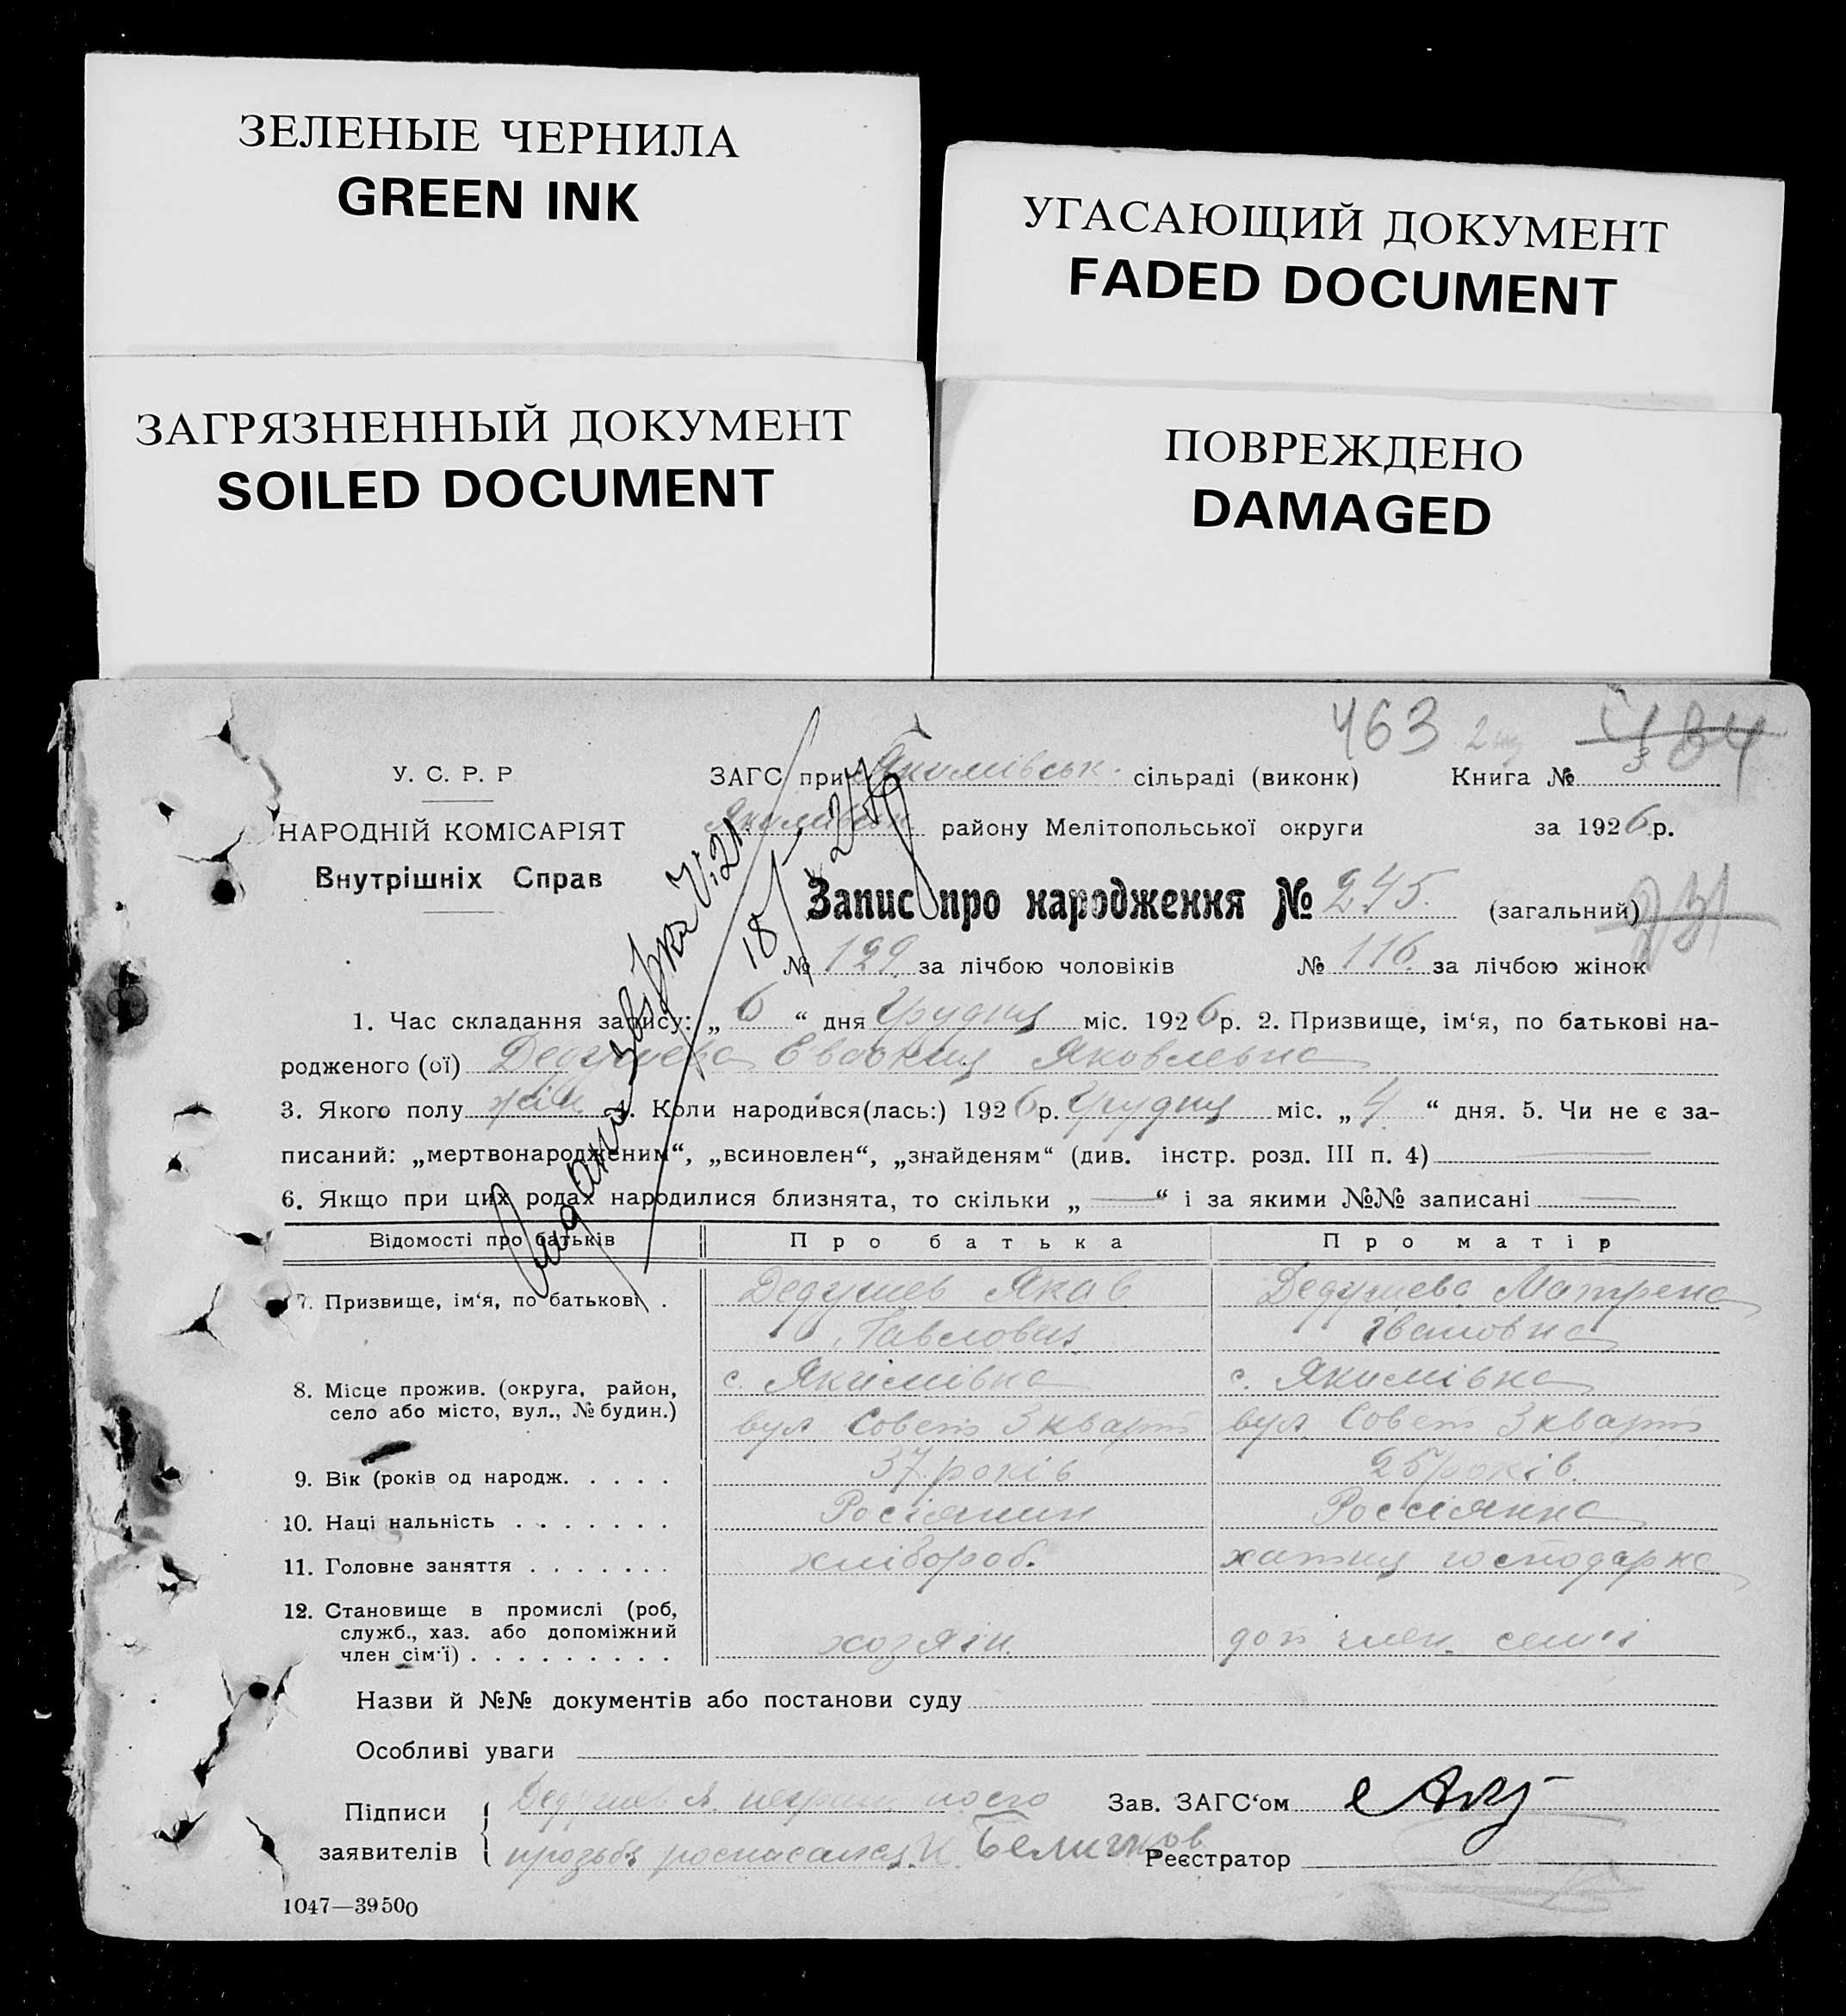 ЗЕЛЕНЫЕ ЧЕРНИЛА
GREEN INK
УГАСАЮЩИЙ ДОКУМЕНТ
FADED DOCUMENT
ЗАГРЯЗНЕННЫЙ ДОКУМЕНТ
SOILED DOCUMENT
ПОВРЕЖДЕНО
DAMAGED
463
У. С. Р. Р
НАРОДНІЙ КОМІСАРІЯТ
Внутрішніх Справ
ЗАГС при Якимівськ. сільраді (виконк) Книга № 3
Якимівськ району Мелітопольської округи за 1926 р.
Запис про народження № 245. (загальний)
№ 129 за лічбою чоловіків № 116 за лічбою жінок
1. Час складання запису: „6“ дня Грудня міс. 1926 р. 2. Призвище, ім‘я, по батькові на-
родженого (ої) Дедушева Евдокия Яковлевна
3. Якого полу жін. 4. Коли народився(лась:) 1926 р. Грудня міс. „4“ дня. 5. Чи не є за-
писаний: „мертвонародженим“, „всиновлен“, „знайденям“ (див. інстр. розд. III п. 4)
6. Якщо при цих родах народилися близнята, то скільки „—“ і за якими №№ записані —
Відомості про батьків Про батька Про матір
7. Призвище, ім‘я, по батькові . Дедушев Яков Дедушева Матрена
Павлович Івановна
8. Місце прожив. (округа, район, с. Якимівка с. Якимівка
село або місто, вул., № будин.) вул. Совет 3 кварт вул. Совет 3 кварт
9. Вік (років од народж. . . . . 37 років 25 років.
10. Наці нальність . . . . . . . Росіянин Россіянка
11. Головне заняття . . . . . . . хлібороб. хатня господарка
12. Становище в промислі (роб,
служб., хаз. або допоміжний
член сім'ї) . . . . . . . . . хозяїн. доп член. семьі
Назви й №№ документів або постанови суду
Особливі уваги
Підписи Дедушев Я. неграм. по его Зав. ЗАГС‘ом
заявителів прозьбе росписался Н. Реєстратор
1047—39500